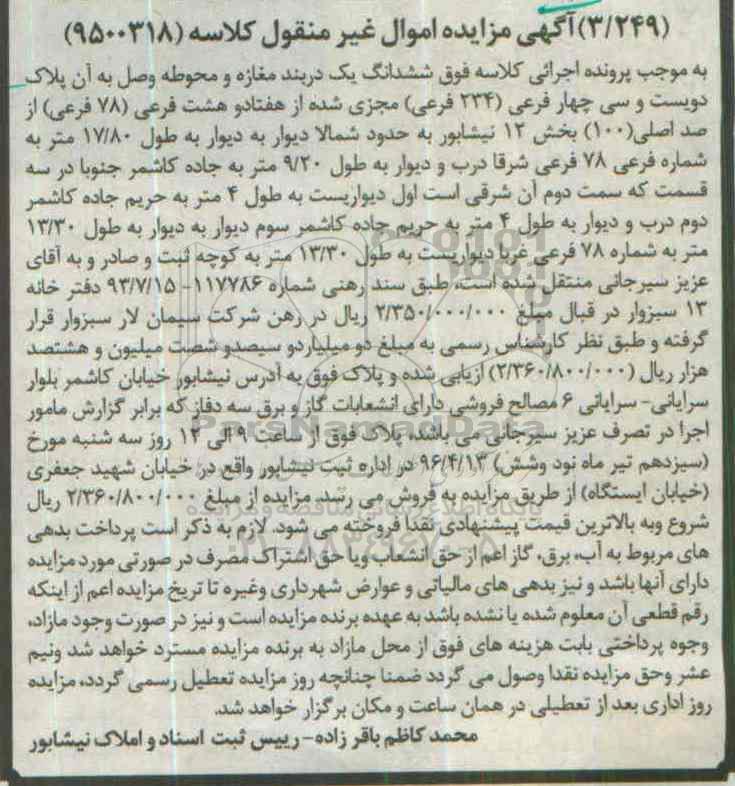 (۳/۲۴۹)آگهی مزایده اموال غیر منقول کلاسه (۹۵۰۰۳۱۸)
به موجب پرونده اجرائی کلاسه فوق ششدانگ یک دربند مغازه و محوطه وصل به آن پلاک
دویست و سی چهار فرعی (۲۳۴ فرعی) مجزی شده از هفتادو هشت فرعی (۷۸ فرعی) از
صد اصلی(۱۰۰) بخش ۱۲ نیشابور به حدود شمالا دیوار به دیوار به طول ۱۷/۸۰ متر به
شماره فرعی ۷۸ فرعی شرقا درب و دیوار به طول ۹/۲۰ متر به جاده کاشمر جنوبا در سه
قسمت که سمت دوم آن شرقی است اول دیواریست به طول ۴ متر به حریم جاده کاشمر
دوم درب و دیوار به طول ۴ متر به حریم جاده کاشمر سوم دیوار به دیوار به طول ۱۳/۳۰
متر به شماره ۷۸ فرعی غربا دیواریست به طول ۱۳/۳۰ متر به کوچه ثبت و صادر و به آقای
عزیز سیرجانی منتقل شده است، طبق سند رهنی شماره ۱۱۷۷۸۶- ۹۳/۷/۱۵ دفتر خانه
۱۳ سبزوار در قبال مبلغ ۲/۳۵۰/۰۰۰/۰۰۰ ریال در رهن شرکت سیمان لار سبزوار قرار
گرفته و طبق نظر کارشناس رسمی به مبلغ دو میلیاردو سیصدو شصت میلیون و هشتصد
هزار ریال (۲/۳۶۰/۸۰۰/۰۰۰) ارزیابی شده و پلاک فوق به آدرس نیشابور خیابان کاشمر بلوار
سرایانی- سرایانی ۶ مصالح فروشی دارای انشعابات گاز و برق سه دفاز که برابر گزارش مامور
اجرا در تصرف عزیز سیرجانی می باشد، پلاک فوق از ساعت ۹ الی ۱۲ روز سه شنبه مورخ
(سیزدهم تیر ماه نود وشش) ۹۶/۴/۱۳ در اداره ثبت نیشابور واقع در خیابان شهید جعفری
(خیابان ایستگاه) از طریق مزایده به فروش می رسد. مزایده از مبلغ ۲/۳۶۰/۸۰۰/۰۰۰ ریال
شروع وبه بالاترین قیمت پیشنهادی نقدا فروخته می شود. لازم به ذکر است پرداخت بدهی
های مربوط به آب، برق، گاز اعم از حق انشعاب ویا حق اشتراک مصرف در صورتی مورد مزایده
دارای آنها باشد و نیز بدهی های مالیاتی و عوارض شهرداری وغیره تا تریخ مزایده اعم از اینکه
رقم قطعی آن معلوم شده یا نشده باشد به عهده برنده مزایده است و نیز در صورت وجود مازاد،
وجوه پرداختی بابت هزینه های فوق از محل مازاد به برنده مزایده مسترد خواهد شد ونیم
عشر وحق مزایده نقدا وصول می گردد ضمنا چنانچه روز مزایده تعطیل رسمی گردد، مزایده
روز اداری بعد از تعطیلی در همان ساعت و مکان برگزار خواهد شد.
محمد کاظم باقر زاده- رییس ثبت اسناد و املاک نیشابور
ParsNamadData